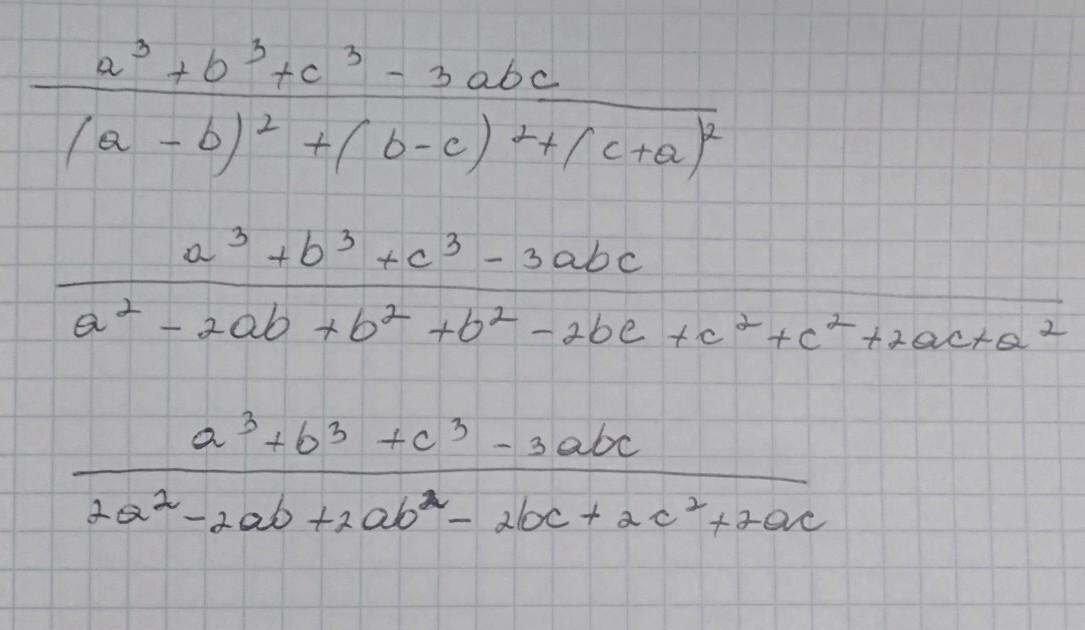 a³ + b³ + c³ - 3abc
(a - b)² + (b - c)² + (c + a)²
a³ + b³ + c³ - 3abc
a² - 2ab + b² + b² - 2bc + c² + c² + 2ac + a²
a³ + b³ + c³ - 3abc
2a² - 2ab + 2ab² - 2bc + 2c² + 2ac